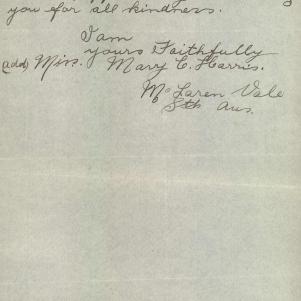 you for all kindness.
I am
yours Faithfully
(add) Miss. Mary E. Harris.
McLaren Vale
Sth Aus.